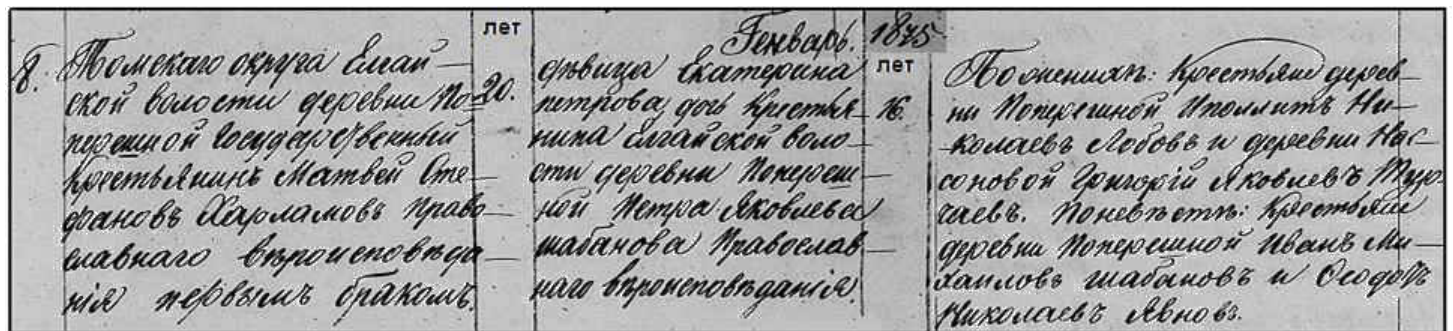 лет
Генварь. 1875
лет
8. Томскаго округа Елгай—
ской волости деревни По—
перешной Государственный
Крестьянинъ Матвей Сте—
фановъ Харламовъ Право—
славнаго вѣроисповѣда—
нія первымъ бракомъ.
20.
дѣвица Екатерина
петрова, дочь Крестья—
нина Елгайской воло—
сти деревни Попереш—
ной Петра Яковлева
шабанова Православ—
наго вѣроисповѣданія.
16.
По женихѣ: Крестьяне дерев—
ни Поперешной Иполлитъ Ни—
колаевъ Лобовъ и деревни Нас—
соновой Григорій Яковлевъ
Поневѣстѣ: Крестьяне
деревни Поперешной Иванъ Ми—
хаиловъ шабановъ и Ѳеодоръ
Николаевъ